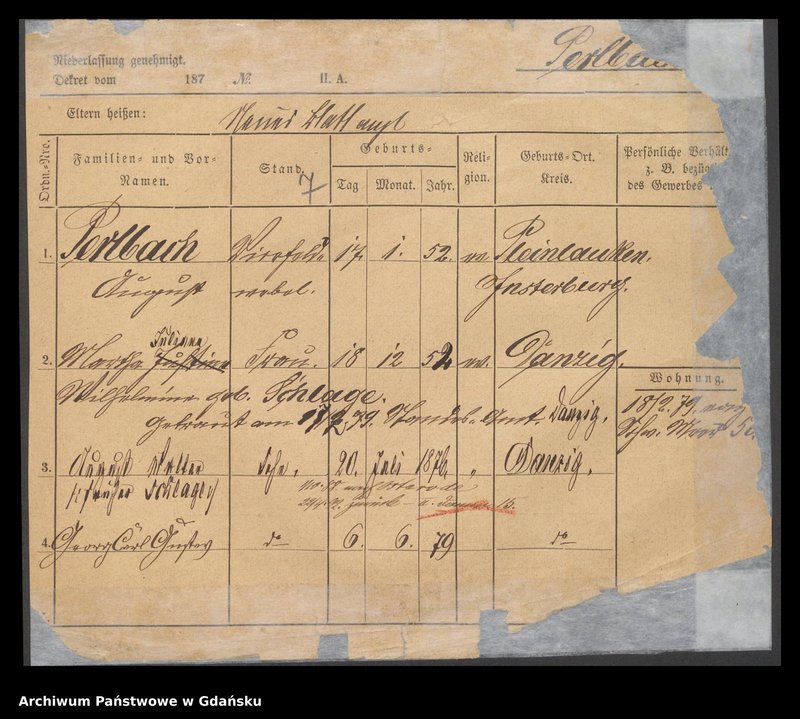 Niederlassung genehmigt.
Dekret vom 187 № II. A.
Perlbach
Eltern heißen: Neues Blatt angl
Ordn.-Nro. Familien- und Vor-Namen. Stand. Geburts- Tag Monat. Jahr. Religion. Geburts-Ort. Kreis. Persönliche Verhält
z. B. bezüg
des Gewerbes
7
1. Perlbach Vizefeld- 17. 1. 52. ev. Pleinlauken.
August webel. Insterburg.
Juliane
2. Martha Justine Frau. 18 12 52 ev. Danzig.
Wohnung.
Wilhelmine geb. Schlage.
getraut am 17/2 79. Standes-Amt. Danzig.
18/2. 79.
Schw. Meer
3. August Walter Sohn. 20. Juli 1876 " Danzig.
früher Schlage
zurück
4. Georg Carl Gustav do 6. 6. 79 do
Archiwum Państwowe w Gdańsku